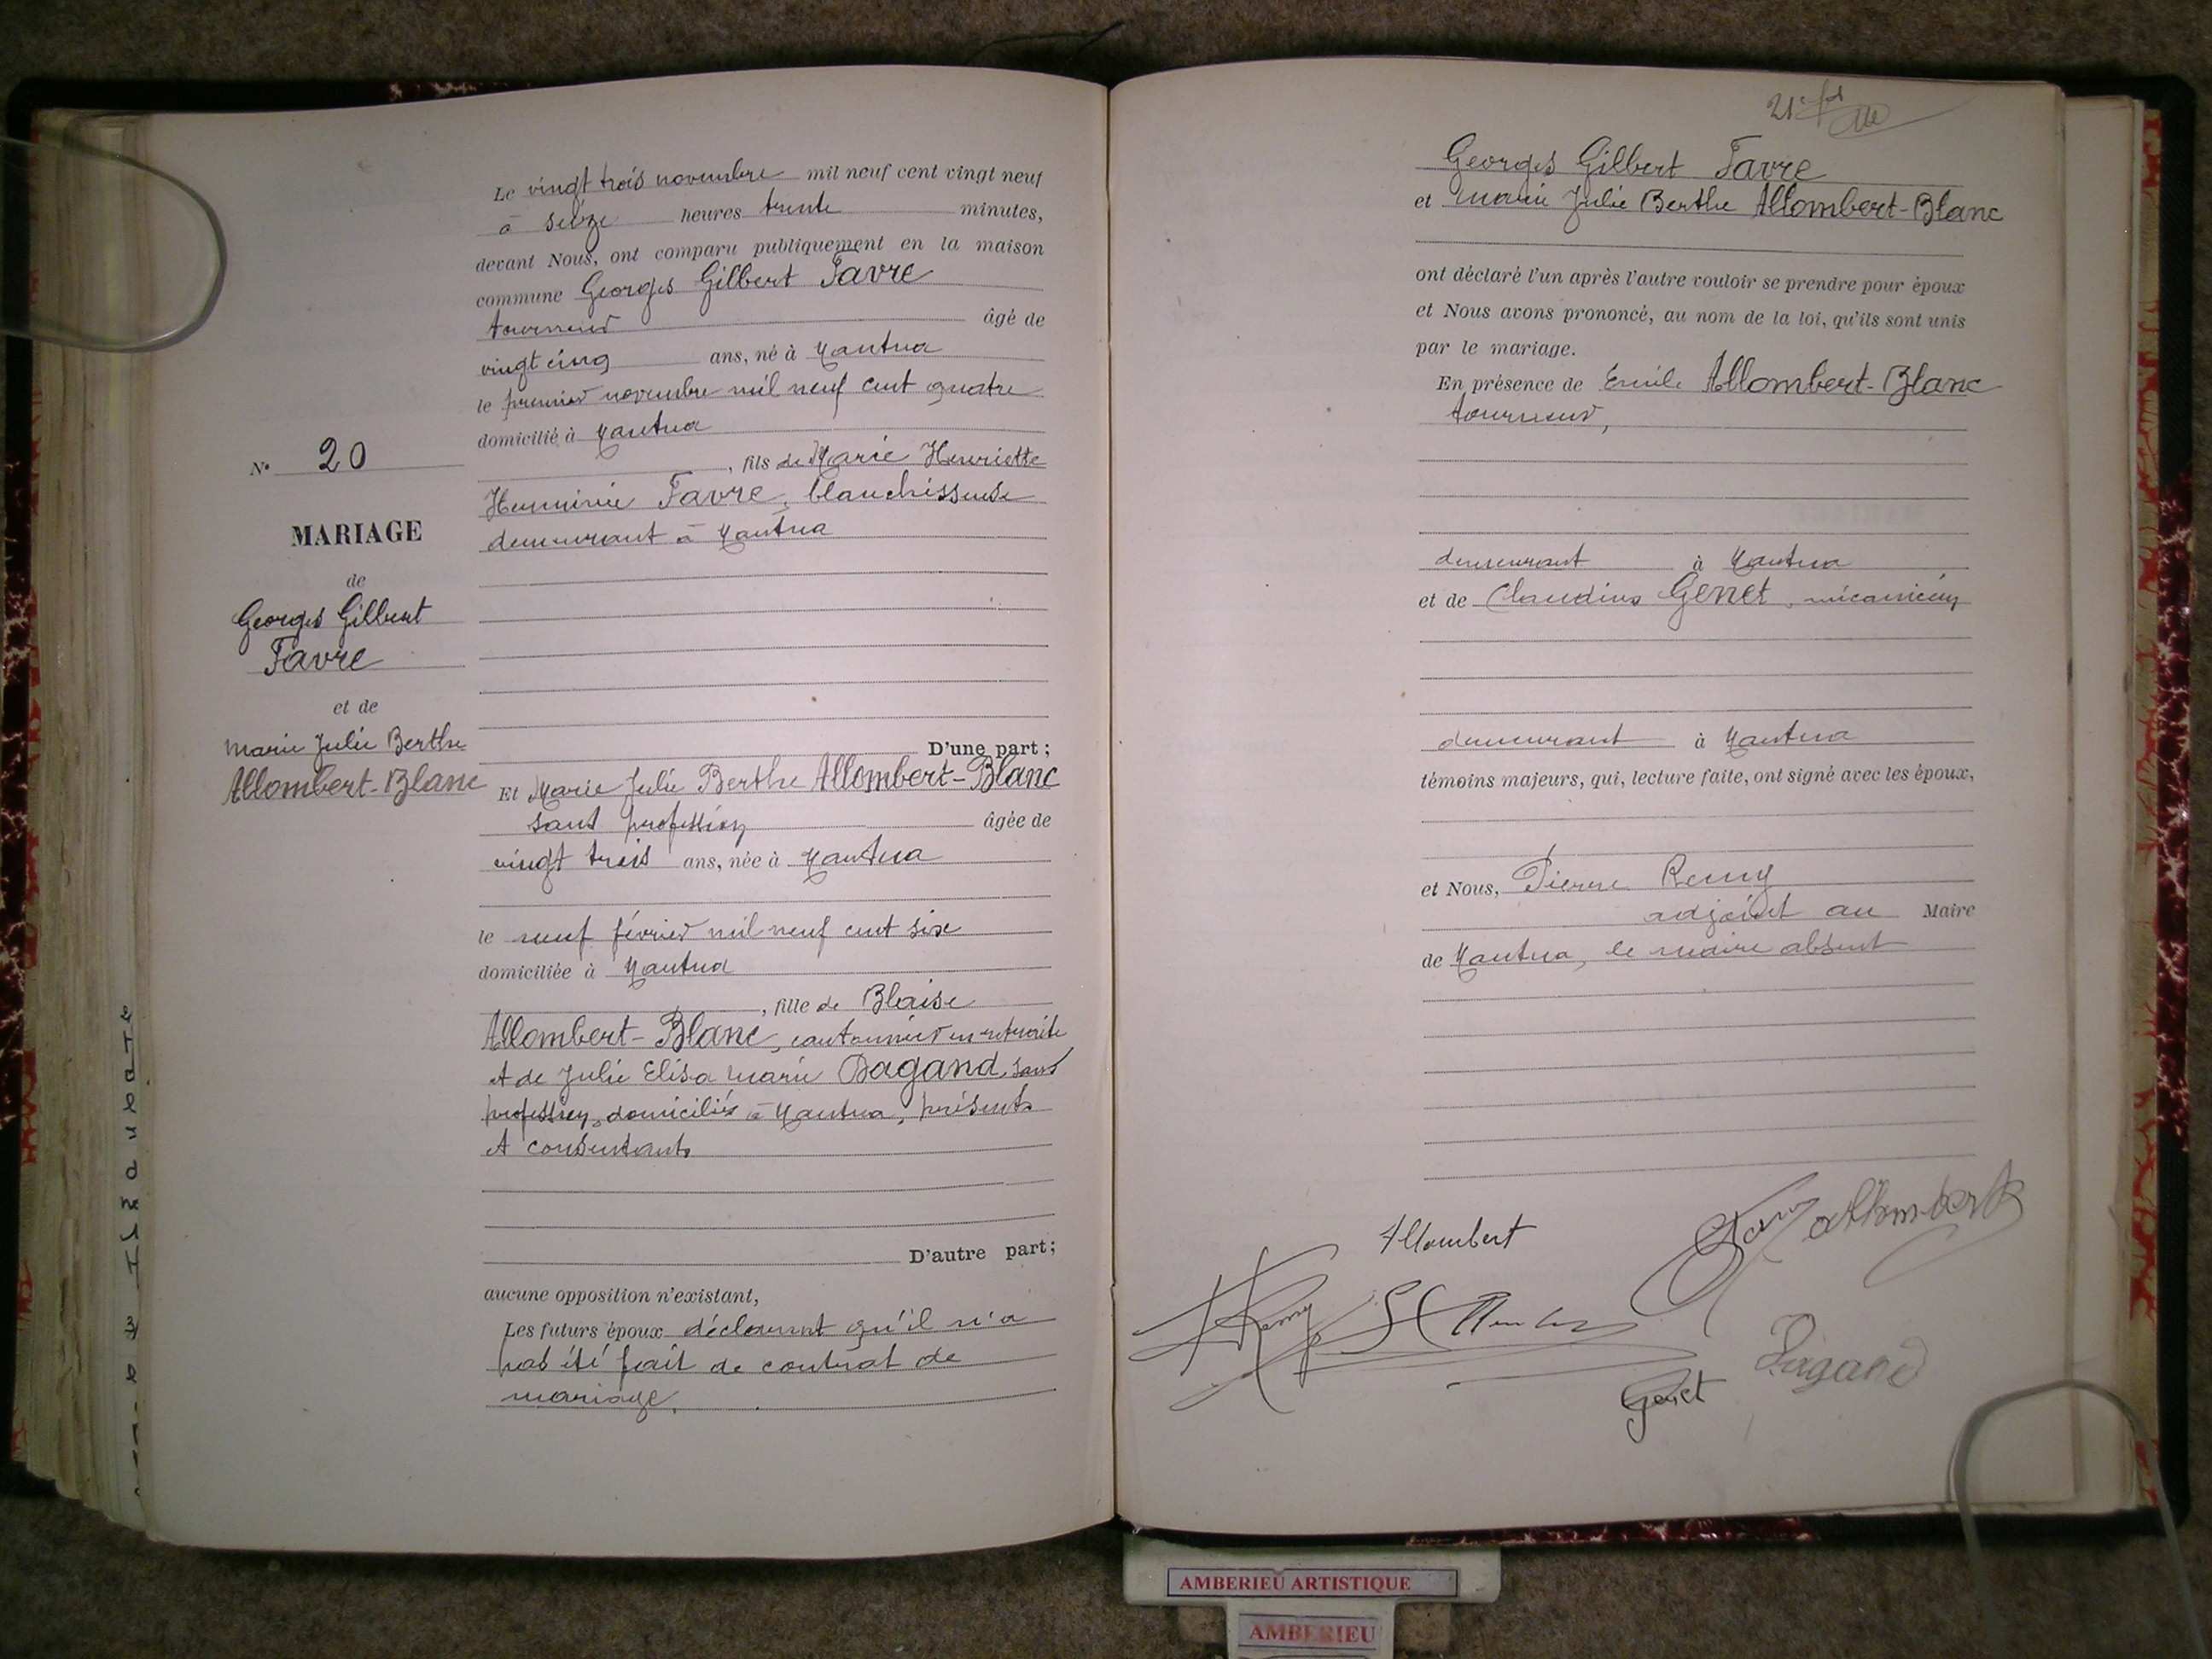 Le vingt trois novembre mil neuf cent vingt neuf
à seize heures trente minutes,
devant Nous, ont comparu publiquement en la maison
commune Georges Gilbert Favre
tourneur âgé de
vingt cinq ans, né à Nantua
le premier novembre mil neuf cent quatre
domicilié à Nantua
, fils de Marie Henriette
Herminie Favre, blanchisseuse
demeurant à Nantua
D'une part ;
N° 20
MARIAGE
de
Georges Gilbert
Favre
et de
Marie Julie Berthe
Allombert-Blanc
Et Marie Julie Berthe Allombert-Blanc
sans profession âgée de
vingt trois ans, née à Nantua
le neuf février mil neuf cent six
domiciliée à Nantua
, fille de Blaise
Allombert-Blanc, cantonnier en retraite
et de Julie Elisa Marie Dagand, sans
profession, domiciliés à Nantua, présents
et consentants
D'autre part ;
aucune opposition n'existant,
Les futurs époux déclarent qu'il n'a
pas été fait de contrat de
mariage.
Georges Gilbert Favre
et Marie Julie Berthe Allombert-Blanc
ont déclaré l'un après l'autre vouloir se prendre pour époux
et Nous avons prononcé, au nom de la loi, qu'ils sont unis
par le mariage.
En présence de Emile Allombert-Blanc
tourneur,
demeurant à Nantua
et de Claudius Genet, mécanicien
demeurant à Nantua
témoins majeurs, qui, lecture faite, ont signé avec les époux,
et Nous, Pierre Remy
adjoint au Maire
de Nantua, le maire absent
Allombert
Allombert
Remy
Dagand
Genet
AMBERIEU ARTISTIQUE
AMBERIEU